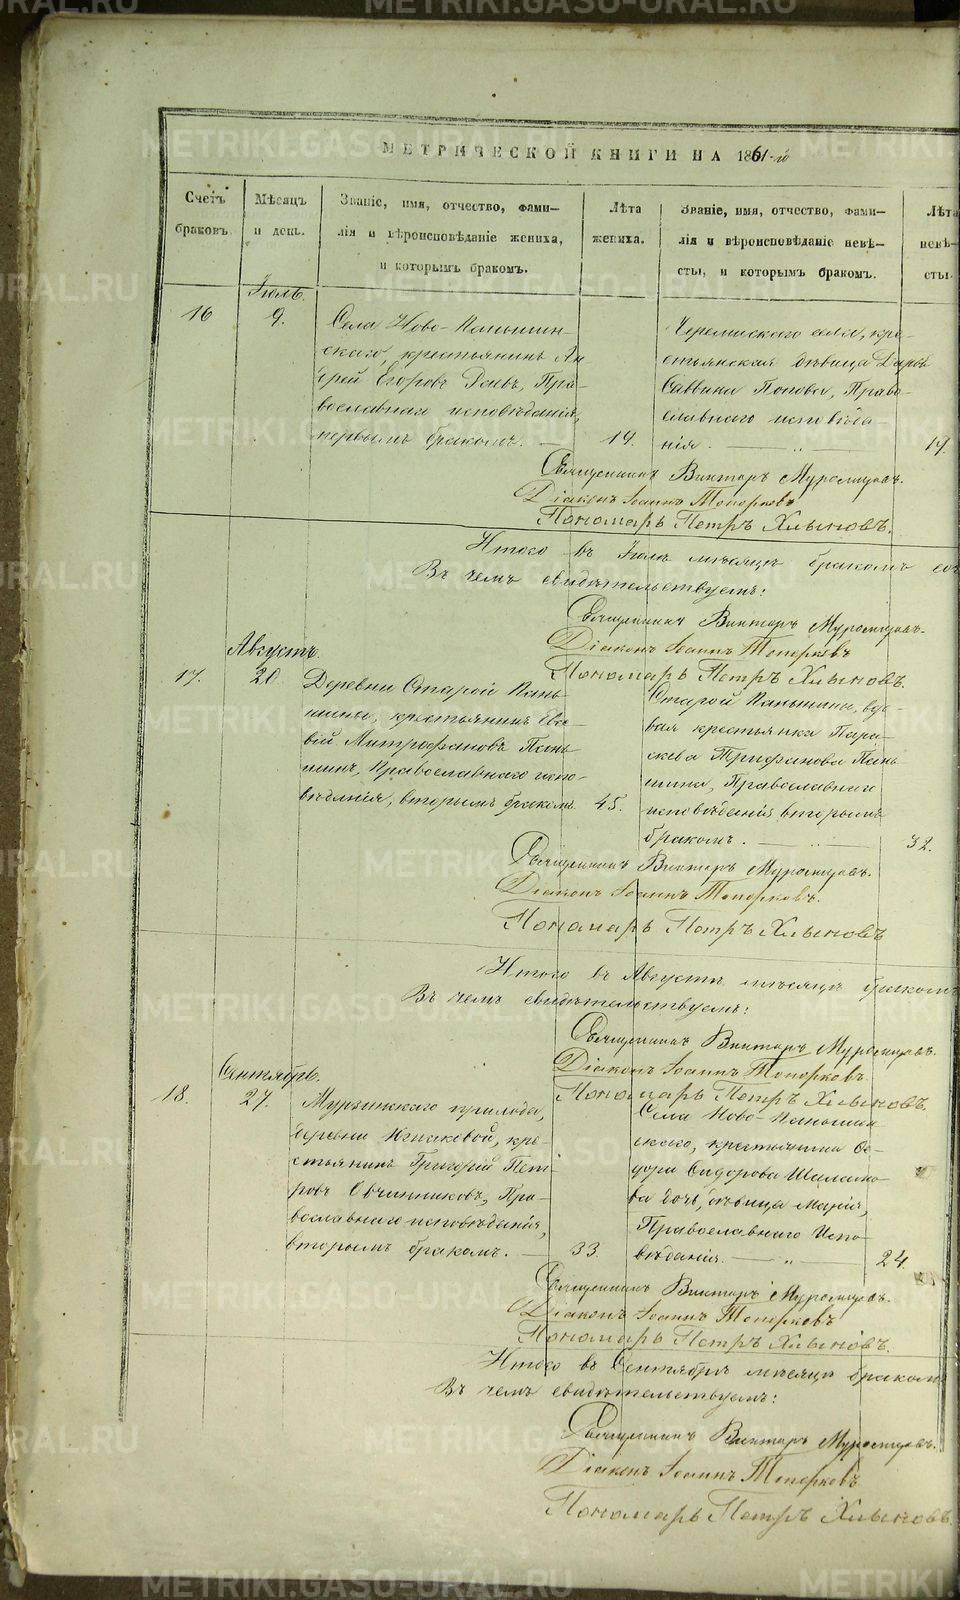 МЕТРИЧЕСКОЙ КНИГИ НА 1861-го
Счетъ браковъ
Мѣсяцъ и день.
Званіе, имя, отчество, фами-
лія и вѣроисповѣданіе жениха,
и которымъ бракомъ.
Лѣта
жениха.
Званіе, имя, отчество, фами-
лія и вѣроисповѣданіе невѣ-
сты, и которымъ бракомъ.
Лѣта
невѣ-
сты.
Іюль.
16
9.
Села Ново-Паньшин-
скаго, крестьянинъ Ан-
дрей Егоровъ Раевъ, Пра-
вославнаго исповѣданія,
первымъ бракомъ. —
19.
Черемисскаго села, кре-
стьянская дѣвица Дарья
Саввина Попова, Право-
славнаго исповѣда-
нія. — „ —
19.
Священникъ Викторъ Муромцовъ.
Діаконъ Іоаннъ Топорковъ
Пономарь Петръ Хлыновъ.
Итого въ Іюлѣ мѣсяцѣ бракомъ соч
Въ чемъ свидѣтельствуемъ:
Священникъ Викторъ Муромцовъ.
Діаконъ Іоаннъ Топорковъ
Пономарь Петръ Хлыновъ.
Августъ.
17.
20
Деревни Старой Пань-
шины, крестьянинъ Сав-
вій Митрофановъ Пань-
шинъ, Православнаго испо-
вѣданія, вторымъ бракомъ
45.
Старой Паньшины, вдо-
вая крестьянка Пара-
скева Трифанова Пань-
шина, Православнаго
исповѣданія вторымъ
бракомъ. —
32.
Священникъ Викторъ Муромцовъ.
Діаконъ Іоаннъ Топорковъ.
Пономарь Петръ Хлыновъ
Итого въ Августѣ мѣсяцѣ бракомъ
Въ чемъ свидѣтельствуемъ:
Священникъ Викторъ Муромцовъ.
Діаконъ Іоаннъ Топорковъ.
Пономарь Петръ Хлыновъ.
Сентябрь.
18.
27.
Мурзинскаго прихода,
деревни кре-
стьянинъ Григорій Пет-
ровъ Овчинниковъ, Пра-
вославнаго исповѣданія,
вторымъ бракомъ. —
33
Села Ново-Паньшин-
скаго, крестьянина Ѳе-
дора Сидорова Шаламо-
ва дочь, дѣвица Марія,
Православнаго Испо-
вѣданія. — „ —
24.
Священникъ Викторъ Муромцовъ.
Діаконъ Іоаннъ Топорковъ
Пономарь Петръ Хлыновъ.
Итого въ Сентябрѣ мѣсяцѣ бракомъ
Въ чемъ свидѣтельствуемъ:
Священникъ Викторъ Муромцовъ.
Діаконъ Іоаннъ Топорковъ
Пономарь Петръ Хлыновъ.
METRIKI.GASO-URAL.RU